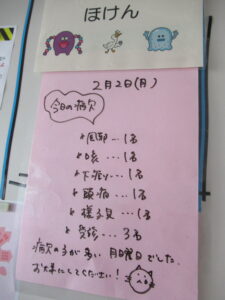 ほけん
2月2日(月)
今日の病欠
・咳…1名
・下痢…1名
・頭痛…1名
・様子見…1名
・受診…3名
病欠の多い月曜日でした。
お大事にしてください!